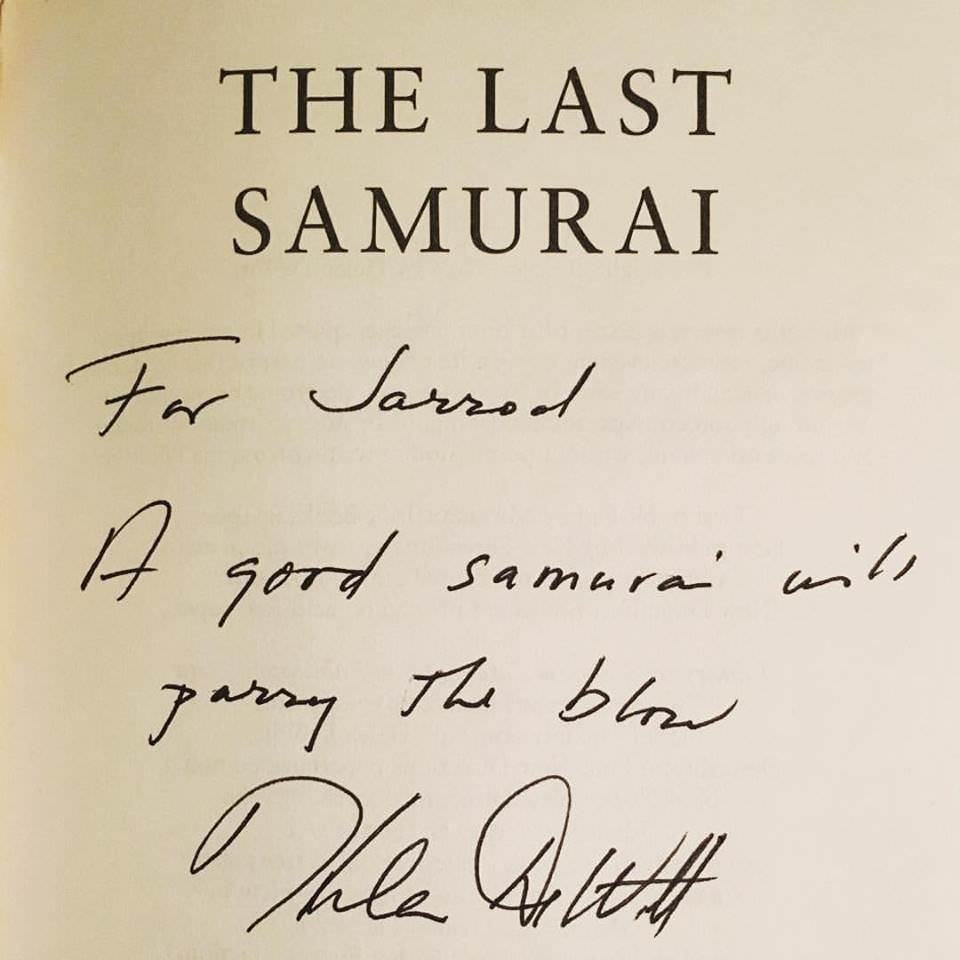 THE LAST
SAMURAI
For Jarrod
A good samurai will
parry the blow
Helen DeWitt